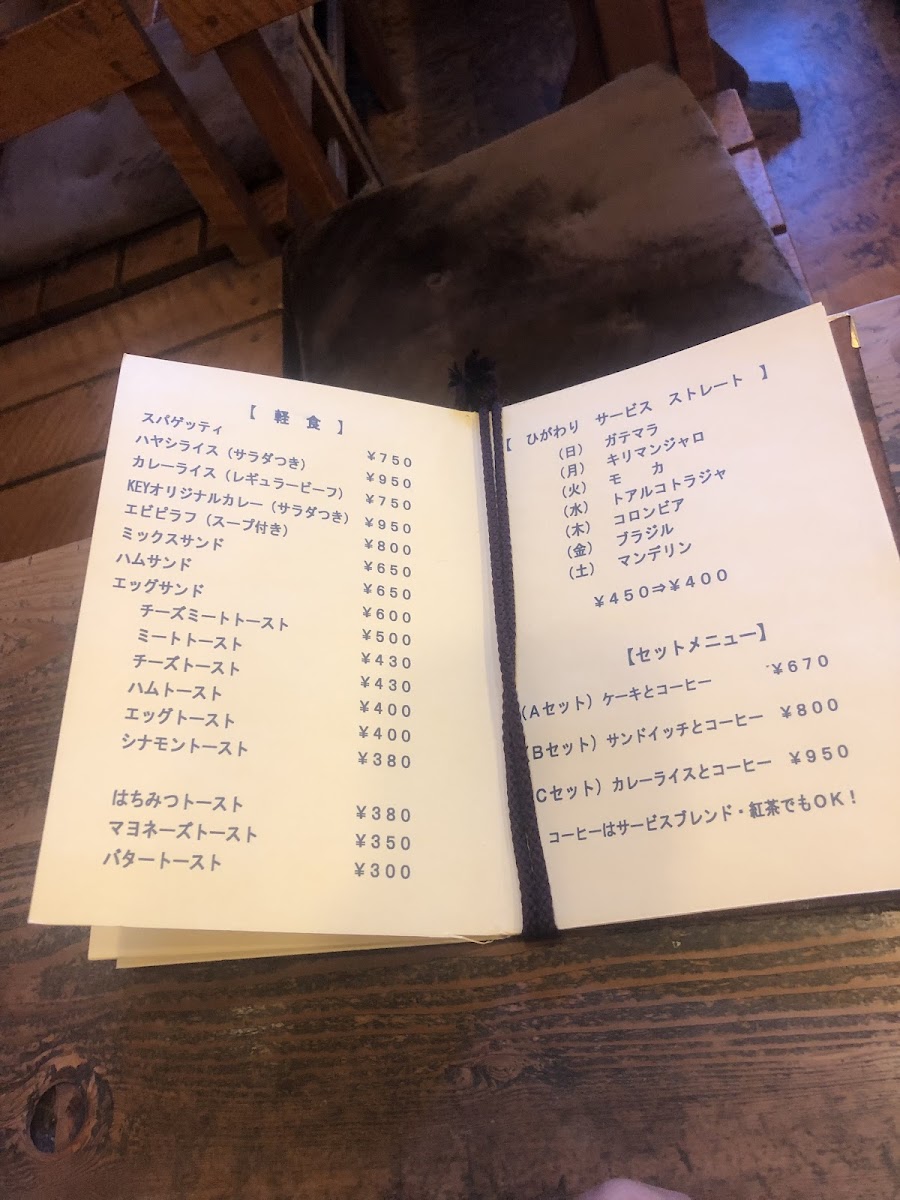 【 軽 食 】
スパゲッティ ¥750
ハヤシライス（サラダつき） ¥950
カレーライス（レギュラービーフ） ¥750
KEYオリジナルカレー（サラダつき） ¥950
エビピラフ（スープ付き） ¥800
ミックスサンド ¥650
ハムサンド ¥650
エッグサンド ¥600
チーズミートトースト ¥500
ミートトースト ¥430
チーズトースト ¥430
ハムトースト ¥400
エッグトースト ¥400
シナモントースト ¥380
はちみつトースト ¥380
マヨネーズトースト ¥350
バタートースト ¥300
【 ひがわり サービス ストレート 】
（日） ガテマラ
（月） キリマンジャロ
（火） モ カ
（水） トアルコトラジャ
（木） コロンビア
（金） ブラジル
（土） マンデリン
¥450⇒¥400
【セットメニュー】
（Aセット）ケーキとコーヒー ¥670
（Bセット）サンドイッチとコーヒー ¥800
Cセット）カレーライスとコーヒー ¥950
コーヒーはサービスブレンド・紅茶でもOK！